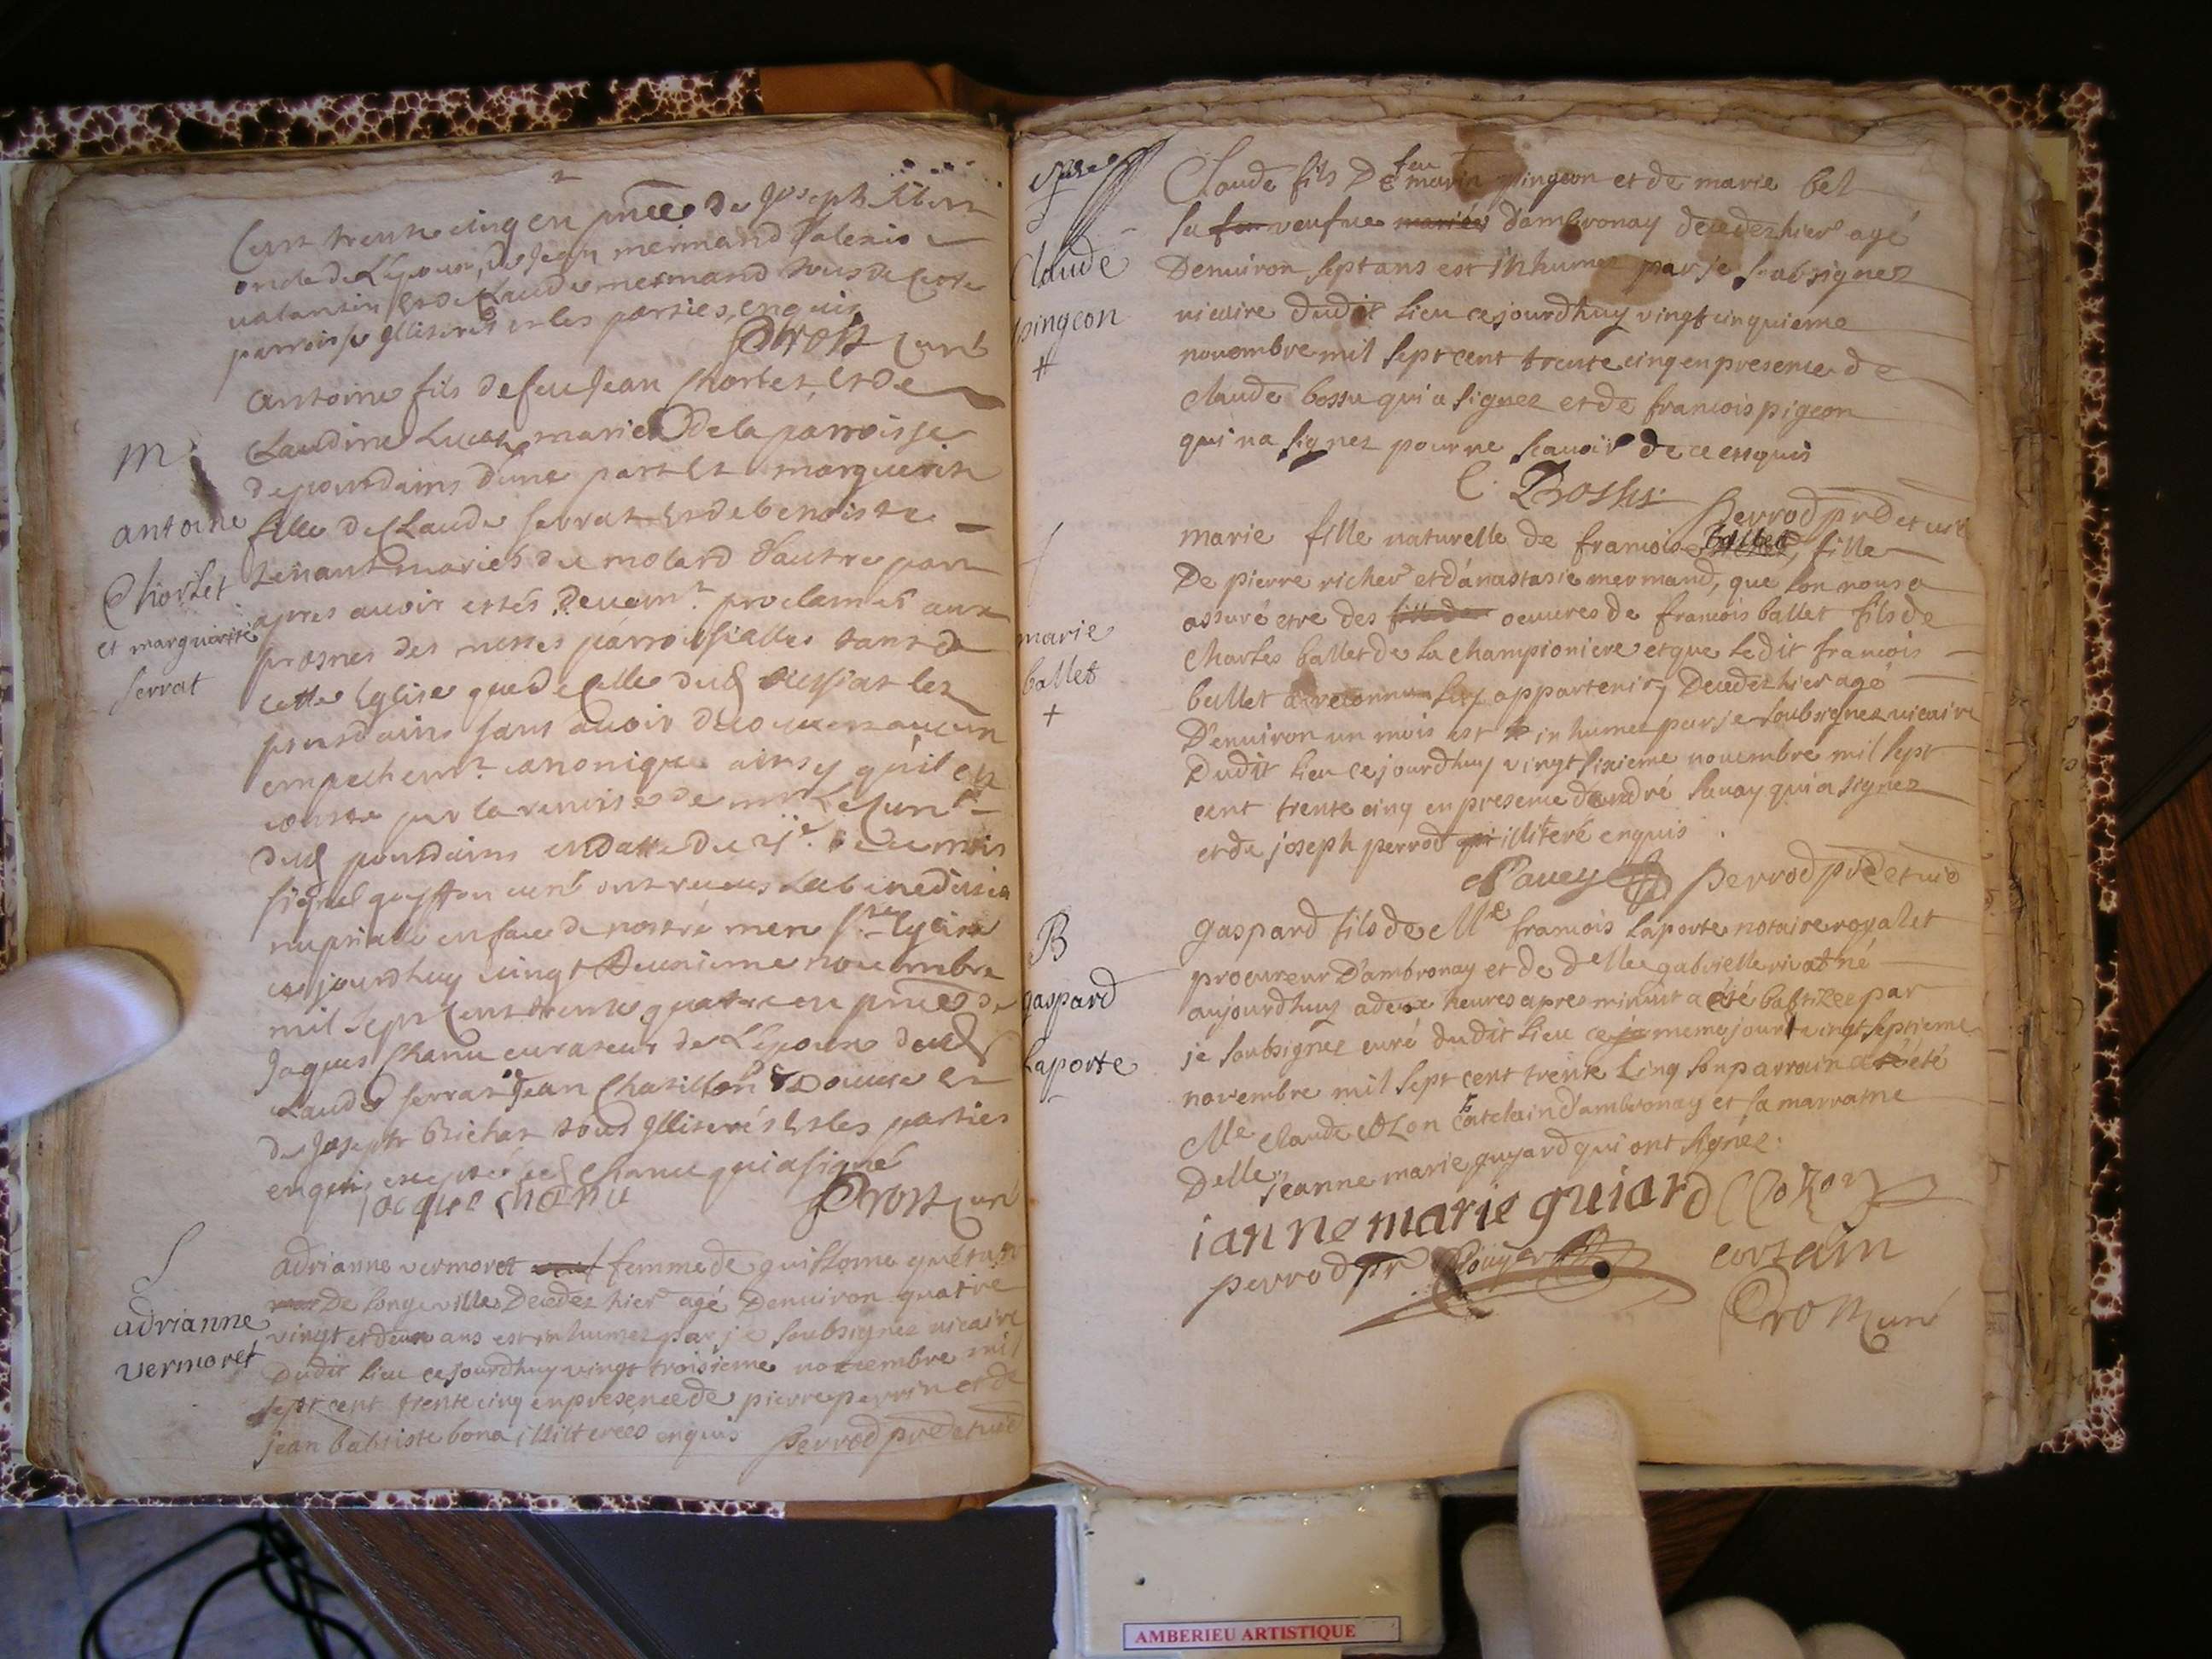 Cent trente cinq en pñce de Joseph
oncle de L'épouse, de Jean mermand Palexis
valantin et de Claude mermand tous de cette
parroisse Illiterés et les parties enquis
Prost curé
m
antoine
Chorlet
et marguerite
serrat
antoine fils de feu Jean Chorlet et de
Claudine mariés de la parroisse
de poursdains d'une part et marguerite
fille de Claude serrat et de benoiste
tenant mariés du molard d'autre part
apres avoir estés devem.t proclamés aux
prosnes des messes parroissialles tant de
cette Eglise que de celle dud
sans avoir decouvert aucun
empechem.t canonique ainsy qu'il en
conste par la remise de mr le curé
dud poursdains en datte du de ce mois
signé guytton curé ont receus la benediction
nuptialle en face de nostre mere s.te Eglise
ce jourdhuy vingt deuxieme novembre
mil sept cent trente quatre en pñce de
Jaques Chanu curateur de L'épouse dud
Claude serrat Jean Chatillon et
de Joseph Richer tous Illiterés et les parties
enquis excepté led Chanu qui a signé
jacque chanu Prost curé
S
adrianne
vermoret
adrianne vermoret femme de guillome
de longeville Decedez hier agé Denviron quatre
vingt et deux ans est inhumez par je soubsignez vicaire
Dudit lieu cejourdhuy vingt troisieme novembre mil
sept cent trente cinq en presence de pierre perrin et de
jean babtiste bona illitterées enquis perrod prê et vic
Claude
pingeon
Claude fils De feu marin pingeon et de marie bel
sa veufve mariés d'ambronay decedez hier agé
Denviron sept ans est inhumez par je soubsignez
vicaire dudit lieu cejourdhuy vingt cinquieme
novembre mil sept cent trente cinq en presence de
claude bossu qui a signez et de francois pigeon
qui na signez pour ne scavoir de ce enquis
C. Bossu perrod prê et vic
marie
ballet
+
marie fille naturelle de francoise fille
De pierre richer et d'anastasie mermand, que lon nous a
assuré etre des oeuvres de francois ballet fils de
Charles ballet de la championiere et que ledit francois
ballet a reconnu luy appartenir, Decedez hier agé
D'environ un mois est inhumez par je soubsignez vicaire
Dudit lieu cejourdhuy vingt sixieme novembre mil sept
cent trente cinq en presence d'andré savay qui a signez
et de joseph perrod illiteré enquis
perrod prê et vic
B
gaspard
Laporte
gaspard fils de Me francois Laporte notaire royal et
procureur D'ambronay et de delle gabrielle rivat né
aujourdhuy a deux heures apres minuit a été babtizée par
je soubsignez curé dudit lieu ce meme jour vingt septieme
novembre mil sept cent trente cinq son parrain a été
Me claude catelain d'ambronay et sa marraine
Delle jeanne marie guyard qui ont signéz.
ianne marie guiard
perrod pr
Prost curé
AMBERIEU ARTISTIQUE